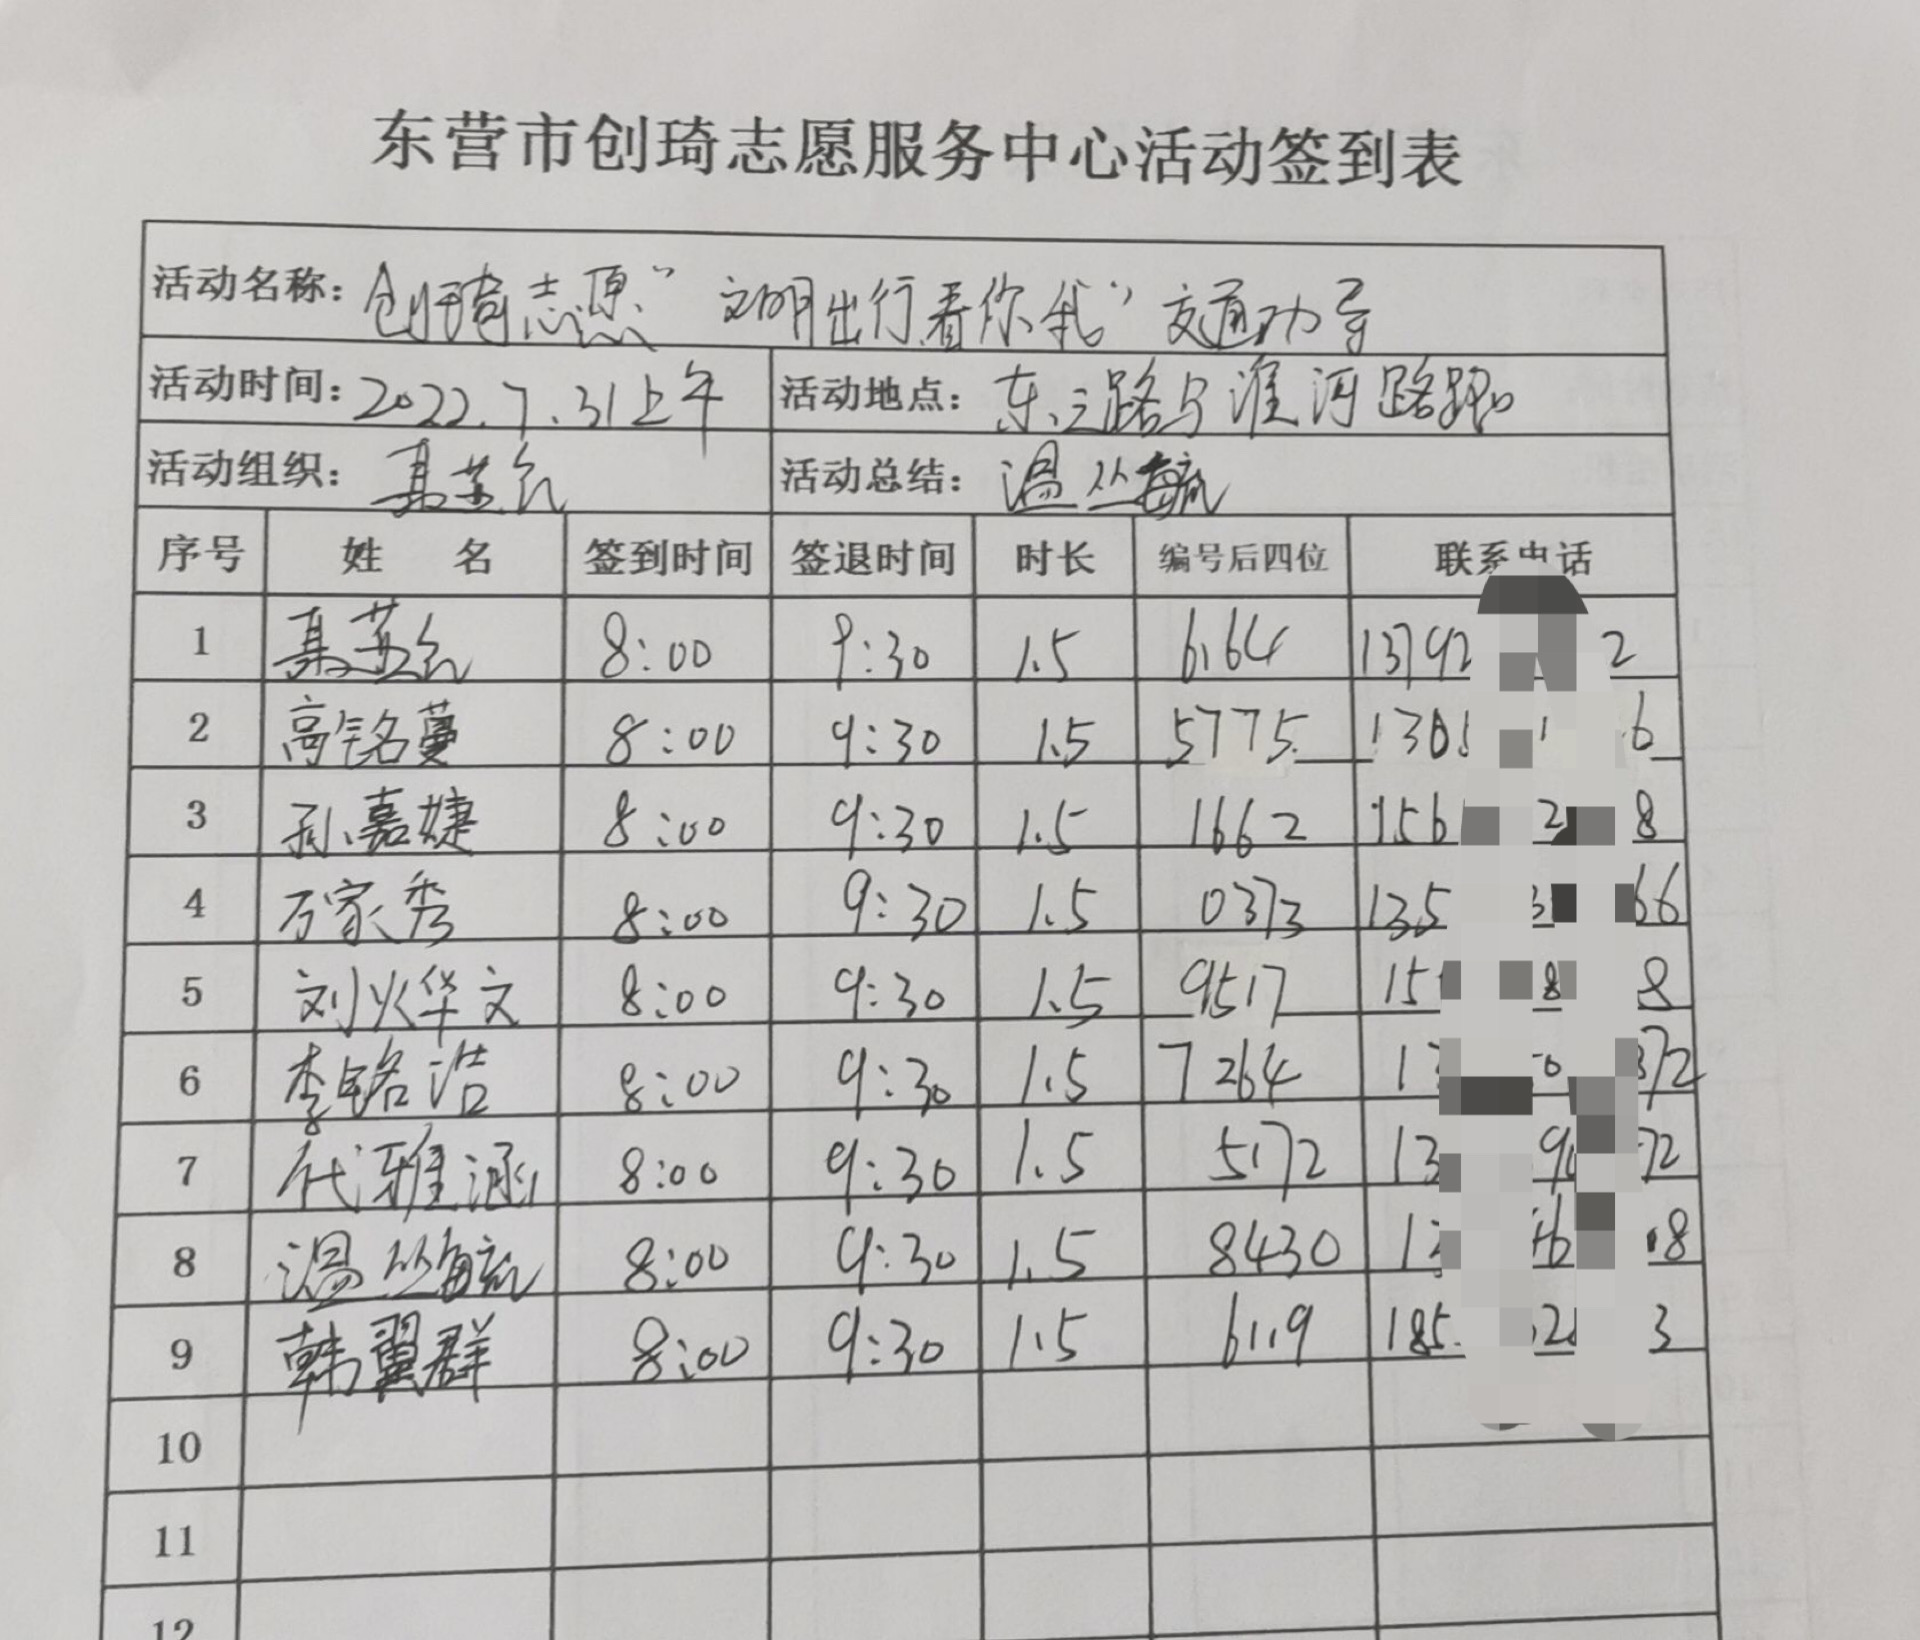 东营市创琦志愿服务中心活动签到表
活动名称: 创琦志愿“文明出行看你我”交通劝导
活动时间: 2022.7.31上午 活动地点: 东三路与淮河路路口
活动组织: 活动总结: 温丛毓
序号 姓 名 签到时间 签退时间 时长 编号后四位 联系电话
1 8:00 9:30 1.5 6164 13792 2
2 高铭蔓 8:00 9:30 1.5 5775 130 6
3 孙嘉婕 8:00 9:30 1.5 1662 156 2 8
4 万家秀 8:00 9:30 1.5 0373 135 3 66
5 刘火华文 8:00 9:30 1.5 9517 15 8 8
6 李铭浩 8:00 9:30 1.5 7264 13 0 72
7 代雅涵 8:00 9:30 1.5 5172 13 9 72
8 温丛毓 8:00 9:30 1.5 8430 1 6 8
9 韩翼群 8:00 9:30 1.5 6119 185 2 3
10
11
12